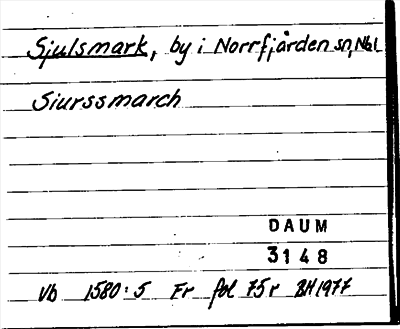 Sjulsmark, by i Norrfjärden sn, Nbl
Siurssmarch
DAUM
3148
Vb 1580:5 Fr fol 75r BH1977